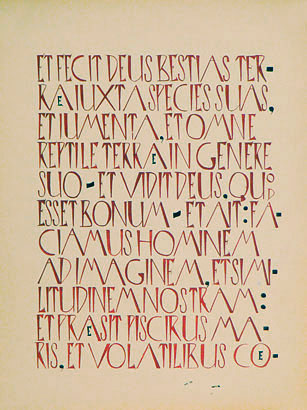 ET FECIT DEUS BESTIAS TER-
RAE IUXTA SPECIES SUAS,
ET IUMENTA, ET OMNE
REPTILE TERRAE IN GENERE
SUO - ET VIDIT DEUS, QUOD
ESSET BONUM - ET AIT: FA-
CIAMUS HOMINEM
AD IMAGINEM, ET SIMI-
LITUDINEM NOSTRAM:
ET PRAESIT PISCIBUS MA-
RIS, ET VOLATILIBUS COE-